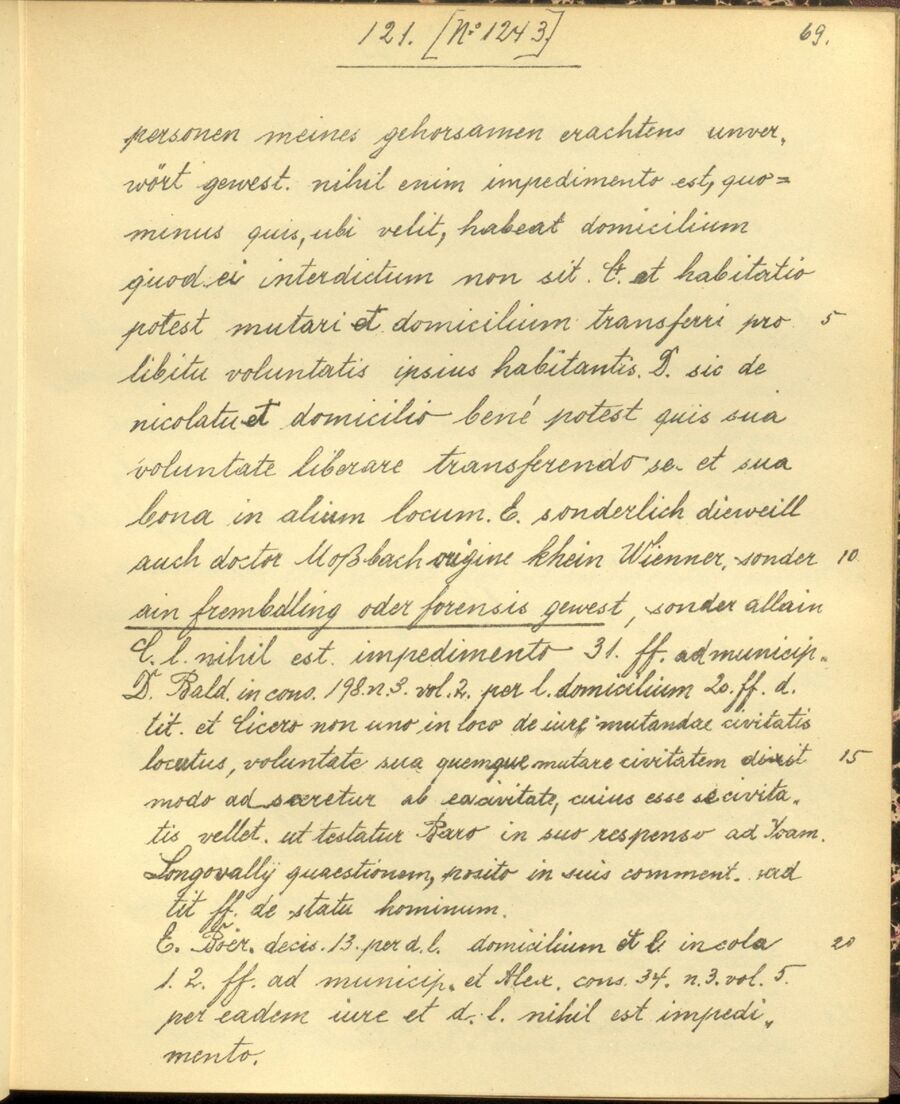 121. [No 1243]
69.
personen meines gehorsamen erachtens unver„
wört gewest. nihil enim impedimento est, quo=
minus quis, ubi velit, habeat domicilium
quod ei interdictum non sit. C. et habitatio
potest mutari et domicilium transferri pro 5
libitu voluntatis ipsius habitantis. D. sic de
nicolatu et domicilio bené potest quis sua
voluntate liberare transferendo se et sua
bona in alium locum. E. sonderlich dieweill
auch doctor Moßbach origine khein Wienner, sonder 10
ain frembdling oder forensis gewest, sonder allain
C. l. nihil est impedimento 31. ff. ad municip.
D. Bald. in cons. 198. n. 3. vol. 2. per l. domicilium 20. ff. d.
tit. et Cicero non uno in loco de iure mutandae civitatis
locutus, voluntate sua quemque mutare civitatem dixit 15
modo ad scxretur ab ea civitate, cuius esse se civita„
tis vellet. ut testatur Baro in suo responso ad Yvam.
Longovallÿ quaestionem, posito in suis comment. ad
tit ff. de statu hominum.
E. Boër. decis. 13. per d. l. domicilium et l. incola 20
1. 2. ff. ad municip. et Alex. cons. 34. n. 3. vol. 5.
per eadem iure et d. l. nihil est impedi„
mento.